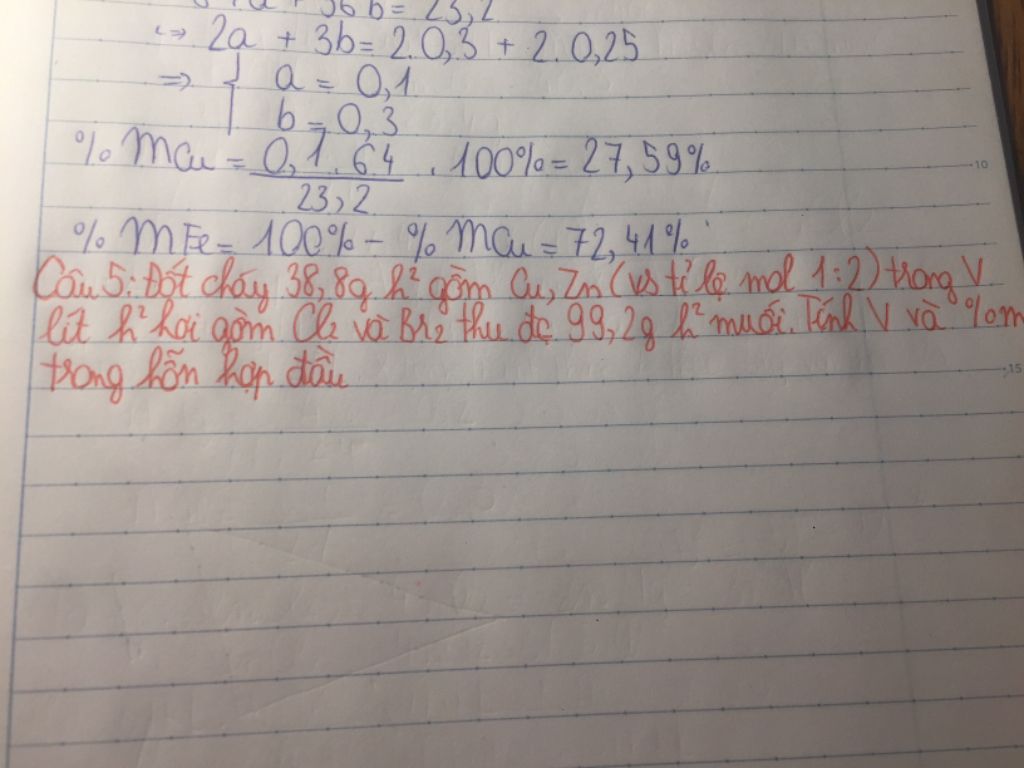 36b = 23,2
⇔ 2a + 3b = 2.0,3 + 2.0,25
⇒ { a = 0,1
b = 0,3
% mCu = 0,1.64 . 100% = 27,59%
23,2
% mFe = 100% - % mCu = 72,41%
Câu 5: Đốt cháy 38,8g h² gồm Cu, Zn (vs tỉ lệ mol 1:2) trong V
lít h² hơi gồm Cl₂ và Br₂ thu đc 99,2g h² muối. Tính V và %m
trong hỗn hợp đầu
10
15